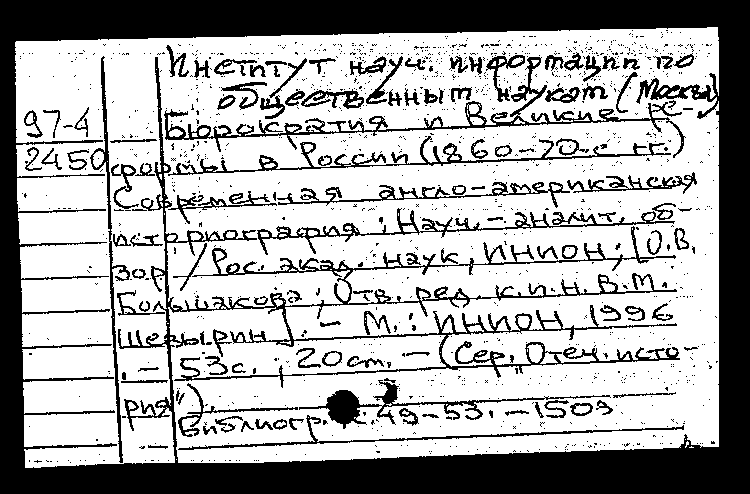 Институт науч. информации по
общественным наукам (Москва)
97-4 Бюрократия и Великие ре-
2450 формы в России (1860-70-е гг.)
Современная англо-американская
историография : Науч.-аналит. об-
зор / Рос. акад. наук, ИНИОН; [О.В.
Большакова; Отв. ред. к.и.н. В.М.
Шевырин]. - М.: ИНИОН, 1996
. - 53с. ; 20см. - (Сер. "Отеч. исто-
рия").
Библиогр.: с. 49-53. - 150э